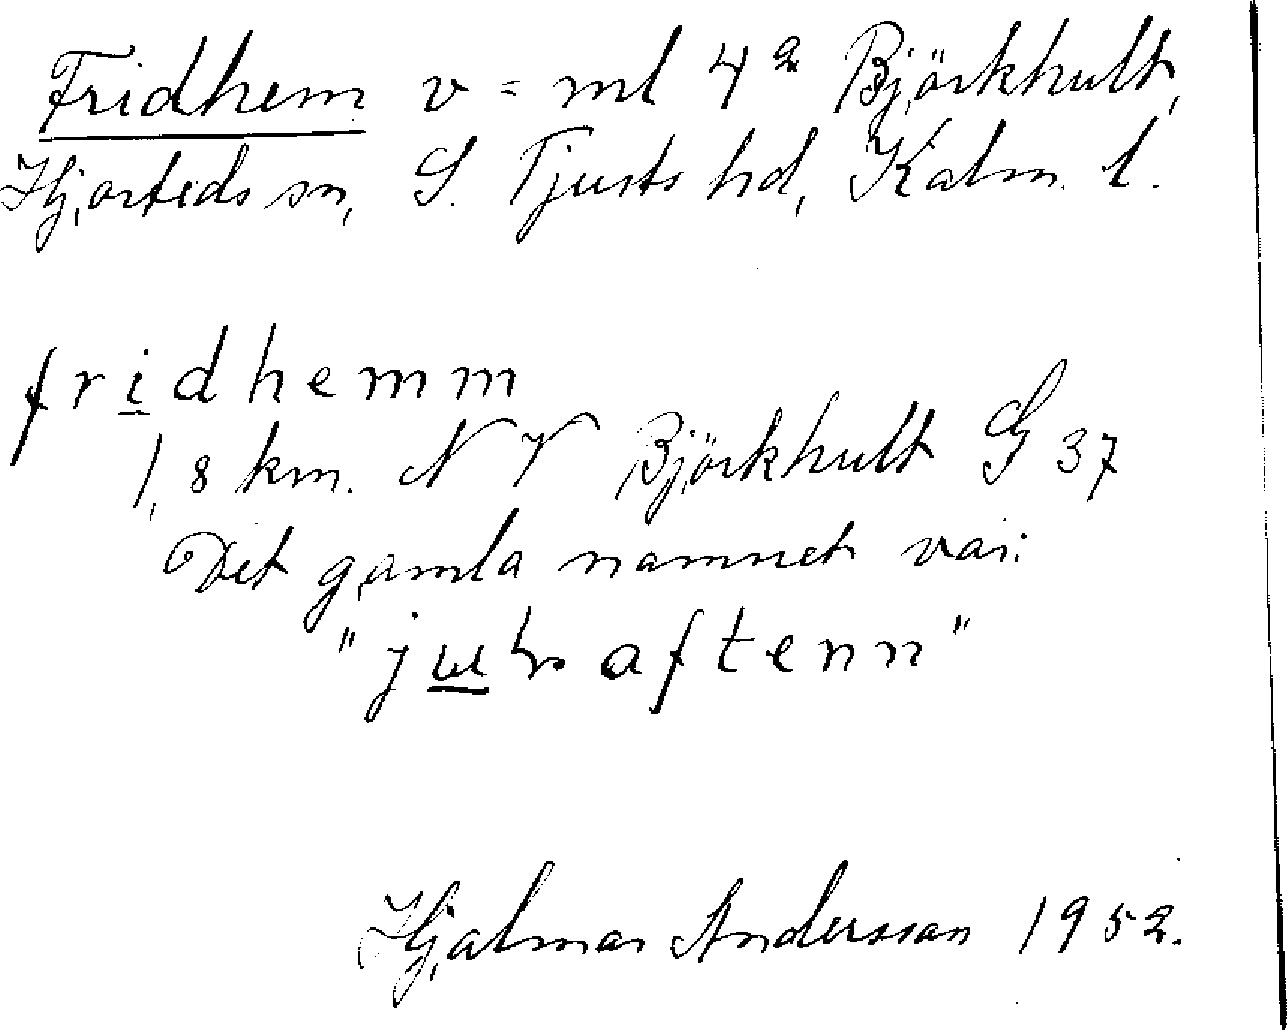 Fridhem v = ml 4 a Björkhult,
Hjorteds sn, S. Tjusts hd, Kalm. l.
fridhemm
1,8 km. NV Björkhult G 37
Det gamla namnet var:
aftenn"
Hjalmar Andersson 1952.